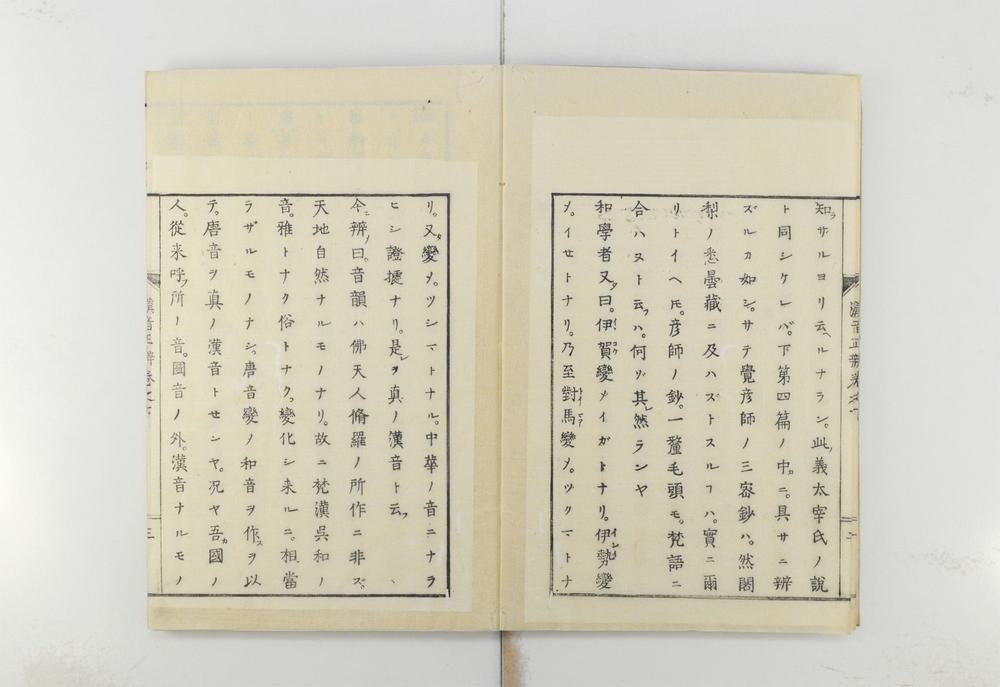 知ラサルヨリ云ヘルナラン。此ノ義太宰氏ノ說
ト同シケレバ。下第四篇ノ中ニ。具サニ辨
ズルカ如シ。サテ覺彥師ノ三密鈔ハ。然闍
梨ノ悉曇藏ニ及ハズトスルヿハ。實ニ爾
リトイヘ𪜈。彥師ノ鈔。一釐毛頭モ。梵語ニ
合ハヌト云フハ。何ゾ其レ然ランヤ
和學者又タ曰。伊賀變メイガトナリ。伊勢變
メ。イセトナリ。乃至對馬變メ。ツクマトナ
リ。又タ變メ。ツシマトナル。中華ノ音ニナラ
ヒシ證據ナリ。是レヲ真ノ漢音ト云フ
今ニ辨ノ曰。音韻ハ佛天人脩羅ノ所作ニ非ズ。
天地自然ナルモノナリ。故ニ梵漢吳和ノ
音。雅トナク俗トナク。變化シ来ルニ。相當
ラザルモノナシ。唐音變ノ和音ヲ作スヲ以
テ。唐音ヲ真ノ漢音トセンヤ。况ヤ吾カ國ノ
人。從来呼フ所ノ音。國音ノ外。漢音ナルモノ
漢音正辨卷之下
二
三